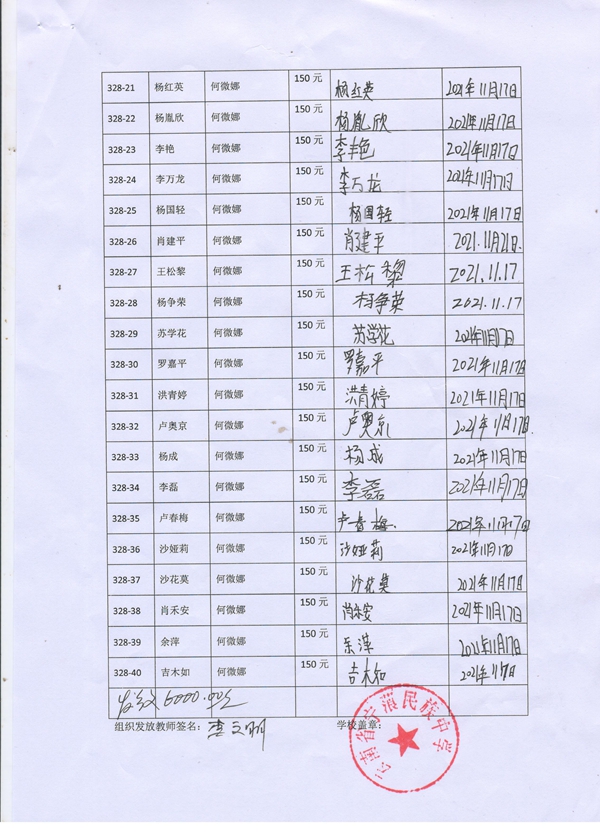 328-21 杨红英 何微娜 150 元 杨红英 2021年11月17日
328-22 杨胤欣 何微娜 150 元 杨胤欣 2021年11月17日
328-23 李艳 何微娜 150 元 李艳 2021年11月17日
328-24 李万龙 何微娜 150 元 李万龙 2021年11月17日
328-25 杨国轻 何微娜 150 元 杨国轻 2021年11月17日
328-26 肖建平 何微娜 150 元 肖建平 2021.11月21日.
328-27 王松黎 何微娜 150 元 王松黎 2021.11.17
328-28 杨争荣 何微娜 150 元 杨争荣 2021.11.17
328-29 苏学花 何微娜 150 元 苏学花 2021年11月17日
328-30 罗嘉平 何微娜 150 元 罗嘉平 2021年11月17日
328-31 洪青婷 何微娜 150 元 洪青婷 2021年11月17日
328-32 卢奥京 何微娜 150 元 卢奥京 2021年11月17日.
328-33 杨成 何微娜 150 元 杨成 2021年11月17日
328-34 李磊 何微娜 150 元 李磊 2021年11月17日
328-35 卢春梅 何微娜 150 元 卢春梅. 2021年11月17日
328-36 沙娅莉 何微娜 150 元 沙娅莉 2021年11月17日
328-37 沙花莫 何微娜 150 元 沙花莫 2021年11月17日
328-38 肖禾安 何微娜 150 元 肖禾安 2021年11月17日
328-39 余萍 何微娜 150 元 余萍 2021年11月17日
328-40 吉木如 何微娜 150 元 吉木如 2021年11月7日
6000.00元
组织发放教师签名： 李文明 学校盖章：
云南省宁蒗民族中学